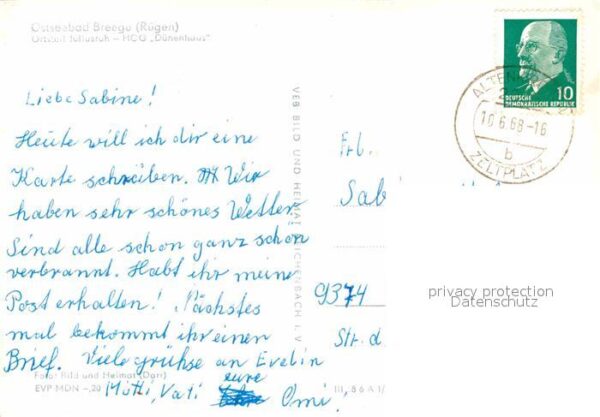 Ostseebad Breege (Rügen)
Ortsteil Juliusruh - HOG „Dünenhaus"
Liebe Sabine!
Heute will ich dir eine
Karte schreiben. Wir
haben sehr schönes Wetter
Sind alle schon ganz schön
verbrannt. Habt ihr meine
Post erhalten! Nächstes
mal bekommt ihr einen
Brief. Viele grühse an Evelin
Mutti, Vati eure Omi.
Foto: Bild und Heimat (Dart)
EVP MDN -,20
III, 8 6 A 1/
VEB BILD UND HEIMAT REICHENBACH I. V.
Frl.
Sab
9374
Str. d
10
DEUTSCHE
DEMOKRATISCHE REPUBLIK
ALTEN
2
10.6.68-16
b
ZELTPLATZ
privacy protection
Datenschutz